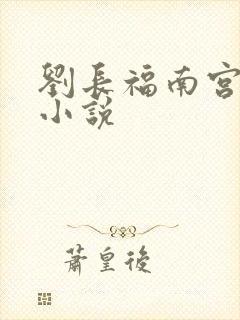 劉長福南宮
小說
蕭皇後